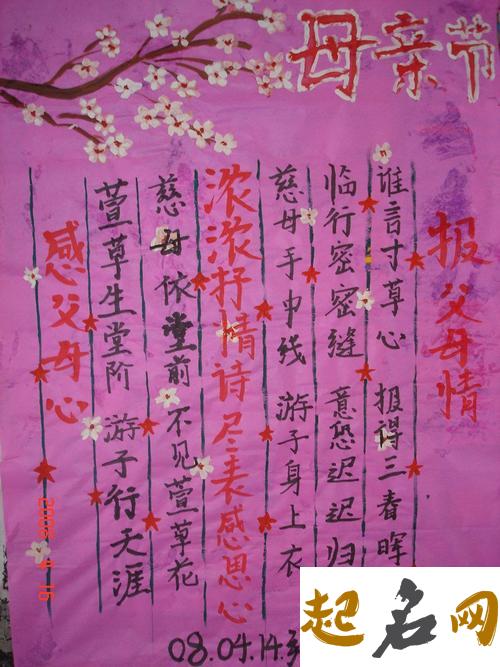 母亲节
报父母情
谁言寸草心 报得三春晖
临行密密缝 意恐迟迟归
慈母手中线 游子身上衣
浓浓抒情诗尽表感恩心
慈母依堂前 不见萱草花
萱草生堂阶 游子行天涯
感父母心
08.04.14.
起名网